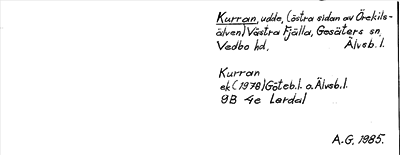 Kurran, udde, (östra sidan av Örekils-
älven) Västra Fjälla, Gesäters sn,
Vedbo hd, Älvsb. l.
Kurran
ek (1978) Göteb. l. o. Älvsb. l.
9B 4e Lerdal
A.G. 1985.